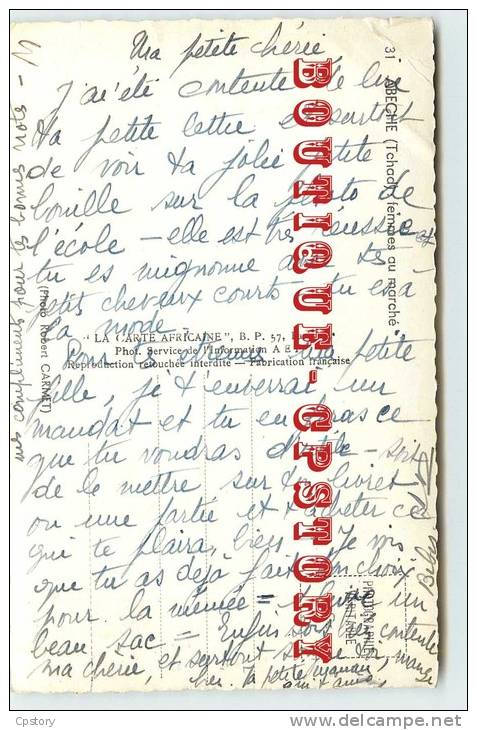 Ma petite chérie
J'ai été contente de lire
ta petite lettre et surtout
de voir ta jolie petite
bouille sur la photo de
l'école - elle est très réussie et
tu es mignonne avec tes
petits cheveux courts tu es à
la mode
Pour tes étrennes ma petite
fille, je t'enverrai un
mandat et tu en feras ce
que tu voudras d'utile - soit
de le mettre sur ton livret
ou une partie et t'acheter ce
qui te plaira, Je vois
que tu as déjà fait ton choix
pour la mémée = un
beau sac = Enfin sois contente
ma chérie, et surtout mange
bien. ta petite maman
mes compliments pour tes bonnes notes -
31 ABECHE (Tchad) femmes au marché
"LA CARTE AFRICAINE", B. P. 57,
Phot. Service de l'Information A E F
Reproduction retouchée interdite — Fabrication française
(Photo Robert CARMET)
BOUTIQUE-CPSTORY
© Cpstory
delcampe.net